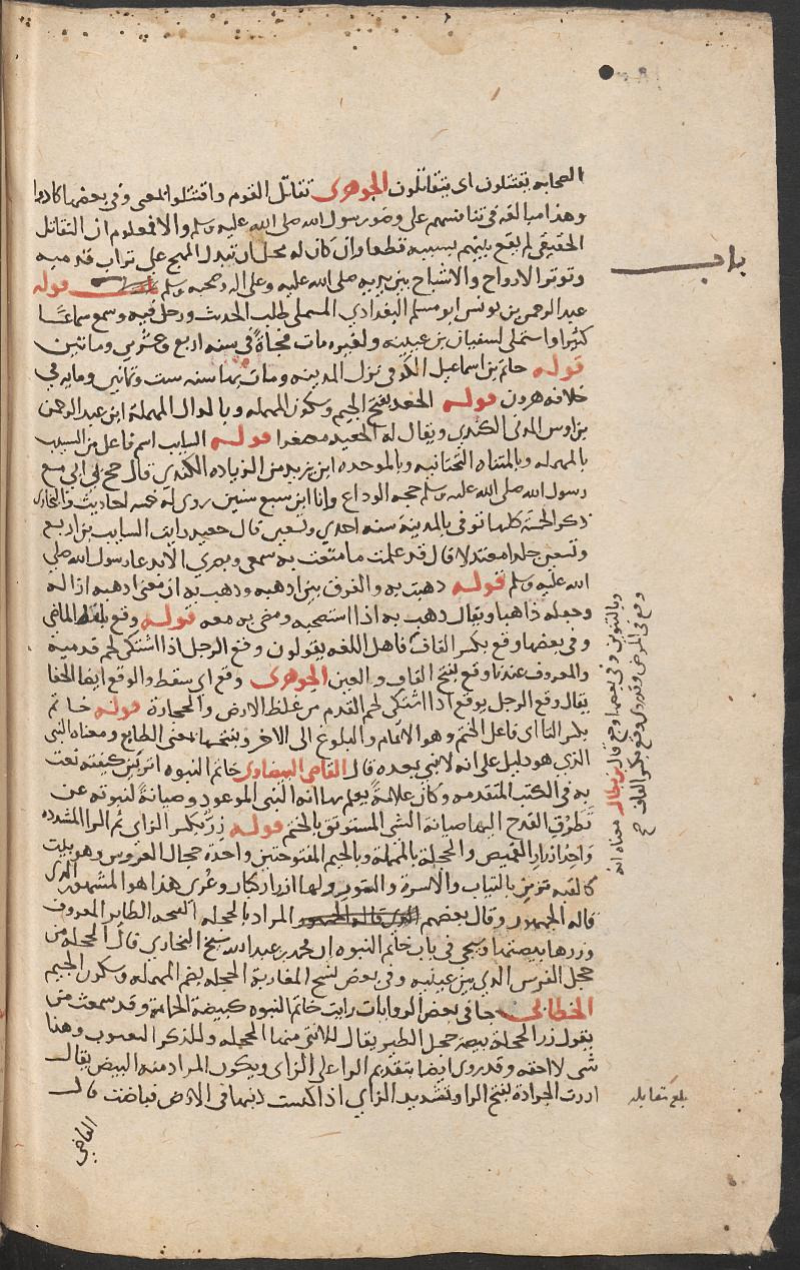 الصحابه يقتتلون اى يتقاتلون الجوهرى تقاتل القوم واقتتلوا بمعنى وفى بعضها كادوا
وهذا مبالغه فى تنافسهم على وضو رسول الله صلى الله عليه وسلم والا فمعلوم ان التقاتل
الحقيقى لم يقع بينهم بسببه قطعا وان كان له محل ان تبذل المهج على تراب قدميه
وتوثر الارواح والاشباح بين يديه صلى الله عليه وعلى اله وصحبه وسلم باب قوله
عبد الرحمن بن يونس ابو مسلم البغدادي المستملى طلب الحديث ورحل فيه وسمع سماعًا
كثيرا واستملى لسفيان بن عيينه ولغيره مات فجأةً فى سنه اربع وعشرين ومائتين
قوله حاتم بن اسماعيل الكوفى نزل المدينه ومات بها سنه ست وثمانين ومايه فى
خلافه هرون قوله الجعد بفتح الجيم وسكون المهمله وبالدال المهملة ابن عبد الرحمن
بن اوس المدنى الكندي ويقال له الجعيد مصغرا قوله السايب اسم فاعل من السيب
بالمهمله وبالمثناه التحتانيه وبالموحده ابن يزيد من الزياده الكندي قال حج بى ابى مع
رسول الله صلى الله عليه وسلم حجه الوداع وانا ابن سبع سنين روى له خمسه احاديث والبخارى
ذكر الخمسة كلها توفى بالمدينة سنه احدي وتسعين قال جعيد رايت السايب بن اربع
وتسعين جلدا معتدلا قال قد علمت ما متعت به سمعى وبصري الا بدعا رسول الله صلى
الله عليه وسلم قوله ذهبت به والفرق بين اذهبه وذهب به ان معنى اذهبه ازاله
وجعله ذاهبا ويقال ذهب به اذا استصحبه ومضى به معه قوله وقع بلفظ الماضى
وفى بعضها وقع بكسر القاف فاهل اللغه يقولون وقع الرجل اذا اشتكى لحم قدميه
والمعروف عندنا وقع بفتح القاف والعين الجوهرى وقع اى سقط والوقع ايضا الحفا
يقال وقع الرجل يوقع اذا اشتكى لحم القدم من غلظ الارض والحجارة قوله خاتم
بكسر التا اى فاعل الختم وهو الاتمام والبلوغ الى الاخر وبفتحها بمعنى الطابع ومعناه الشى
الذي هو دليل على انه لا نبى بعده قال القاضى البيضاوى خاتم النبوه اثر بين كتفيه نعت
به فى الكتب المتقدمه وكان علامةً يعلم بها انه النبى الموعود وصيانةً لنبوته عن
تطرّق القدح اليها صيانه الشى المستوثق بالختم قوله زرّ بكسر الزاي ثم الرا المشدده
واحد ازرار القميص والحجلة بالمهملة وبالجيم المفتوحتين واحده حجال العروس وهو بيت
كالقبه يزين بالثياب والاسرة والستور ولها ازرار كبار وعُرى هذا هو المشهور الذى
قاله الجمهور وقال بعضهم المراد بالحجله القبجه الطاير المعروف
وزرها بيضتها وسيجى فى باب خاتم النبوه ان محمد بن عبيد الله شيخ البخاري قال الحجله من
حجل الفرس الذي بين عينيه وفى بعض نسخ المغاربه الحجله بضم المهمله وسكون الجيم
الخطابى جا فى بعض الروايات رايت خاتم النبوه كبيضة الحمامة وقد سمعت من
يقول زر الحجله بيضة حجل الطير يقال للانثى منها الحجله وللذكر اليعسوب وهذا
شى لا احقه وقد روى ايضا بتقديم الرا على الزاى ويكون المراد منه البيض يقال
ارزت الجرادة بفتح الرا وتشديد الزاى اذا كبست ذنبها فى الارض فباضت قال
القاضى
باب
وبالتنوين وفى بعضها وجع قال ابن بطال معناه انه
وقع فى المرض وقد روى وقع بكسر القاف ح
بلغ مقابله